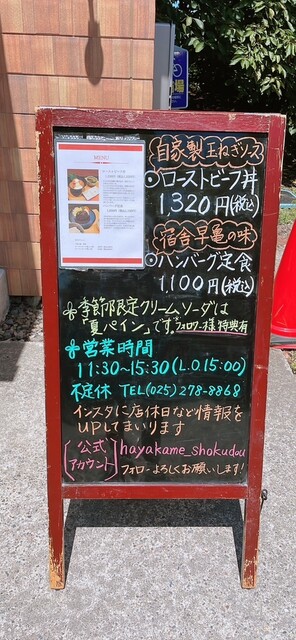 MENU
自家製玉ねぎソース
◎ローストビーフ丼
1,320円(税込)
宿舎早亀の味
◎ハンバーグ定食
1,100円(税込)
季節限定クリームソーダは
「夏パイン」です。フォロワー様特典有
営業時間
11:30~15:30(L.O.15:00)
不定休 TEL(025)278-8868
インスタに店休日など情報を
UPしてまいります
[公式アカウント] hayakame_shokudou
フォローよろしくお願いします!